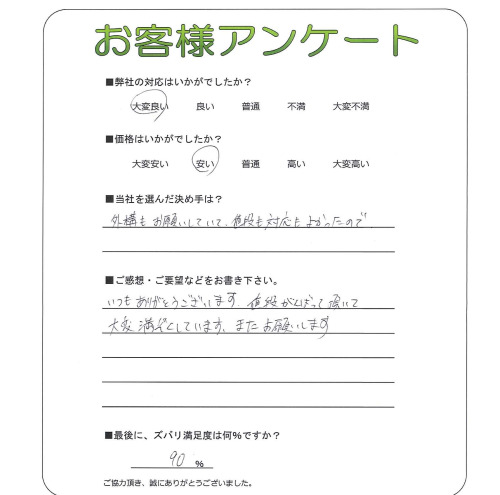 お客様アンケート
■弊社の対応はいかがでしたか？
大変良い 良い 普通 不満 大変不満
■価格はいかがでしたか？
大変安い 安い 普通 高い 大変高い
■当社を選んだ決め手は？
外構もお願いしていて、値段も対応もよかったので
■ご感想・ご要望などをお書き下さい。
いつもありがとうございます。値段がんばって頂いて
大変満ぞくしています、またお願いします
■最後に、ズバリ満足度は何％ですか？
90 ％
ご協力頂き、誠にありがとうございました。